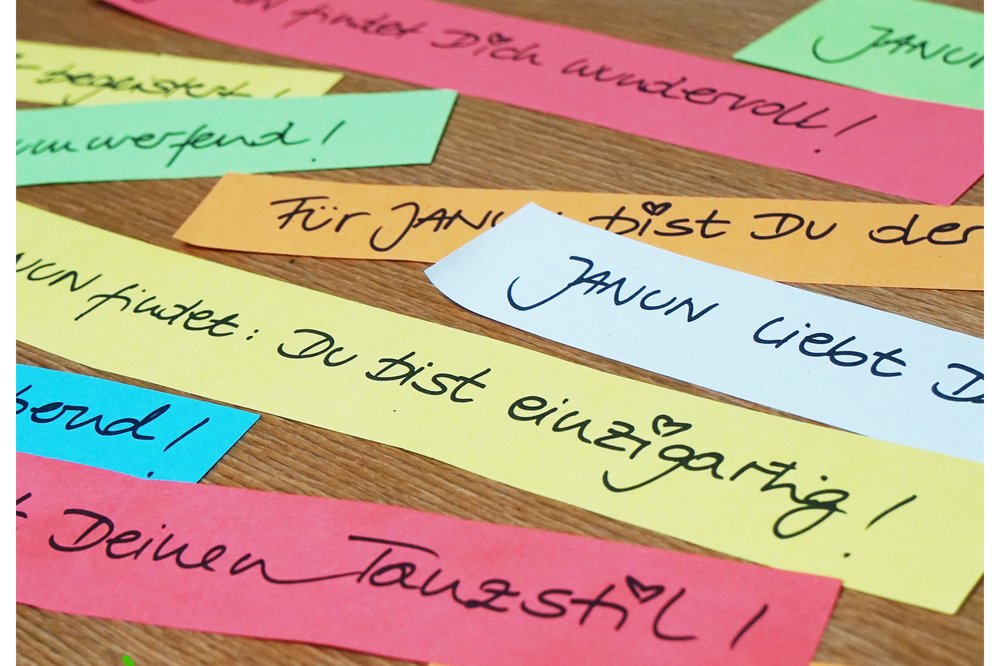 findet Dich wundervoll!
JANUN
begeistert!
umwerfend!
Für JANUN bist Du der
JANUN liebt D
NUN findet: Du bist einzigartig!
bernd!
t Deinen Tanzstil!